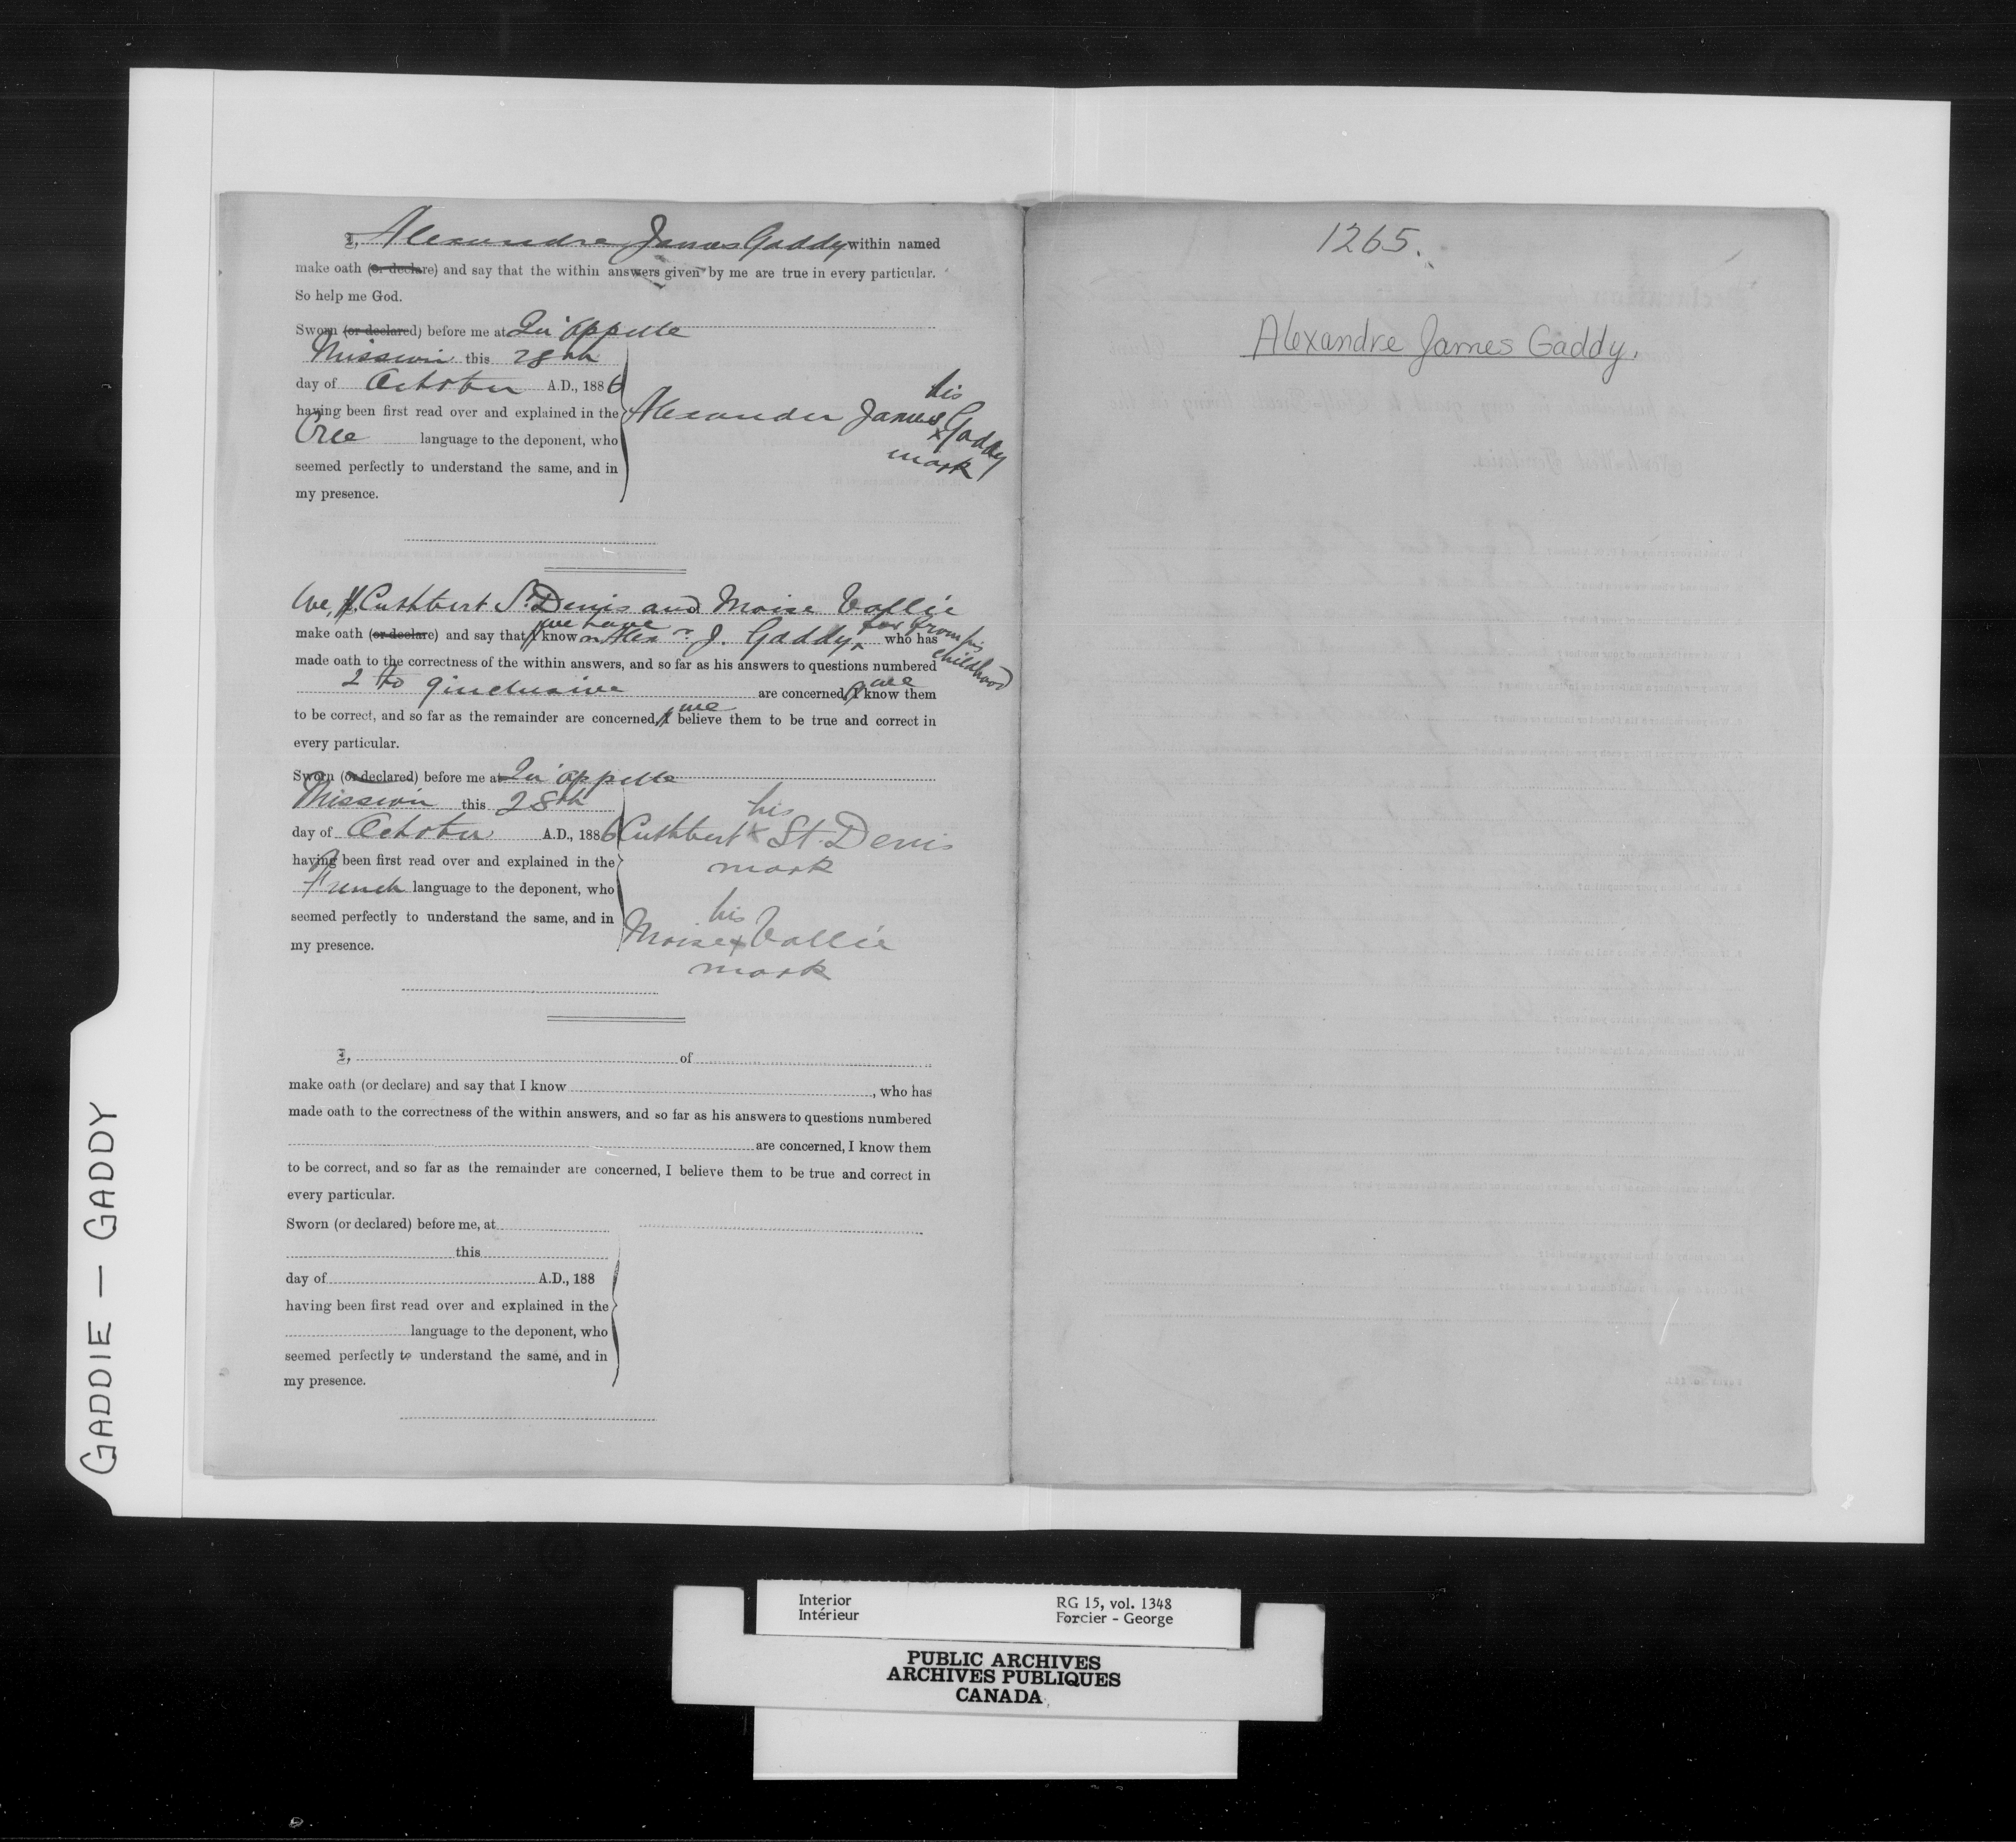 I, Alexandre James Gaddy within named
make oath (or declare) and say that the within answers given by me are true in every particular.
So help me God.
Sworn (or declared) before me at Qu'appelle
Mission this 28th
day of October A.D., 1886
having been first read over and explained in the
Cree language to the deponent, who
seemed perfectly to understand the same, and in
my presence.
his
Alexander James x Gaddy
mark
We, I, Cuthbert St. Denis and Moise Vallie
make oath (or declare) and say that I we have known Alexr J. Gaddy, from his childhood who has
made oath to the correctness of the within answers, and so far as his answers to questions numbered
2 to 9 inclusive are concerned, I we know them
to be correct, and so far as the remainder are concerned, I we believe them to be true and correct in
every particular.
Sworn (or declared) before me at Qu'appelle
Mission this 28th
day of October A.D., 1886
having been first read over and explained in the
French language to the deponent, who
seemed perfectly to understand the same, and in
my presence.
his
Cuthbert x St. Denis
mark
his
Moise x Vallie
mark
I, of
make oath (or declare) and say that I know , who has
made oath to the correctness of the within answers, and so far as his answers to questions numbered
are concerned, I know them
to be correct, and so far as the remainder are concerned, I believe them to be true and correct in
every particular.
Sworn (or declared) before me, at
this
day of A.D., 188
having been first read over and explained in the
language to the deponent, who
seemed perfectly to understand the same, and in
my presence.
1265.
Alexandre James Gaddy.
GADDIE — GADDY
Interior RG 15, vol. 1348
Intérieur Forcier - George
PUBLIC ARCHIVES
ARCHIVES PUBLIQUES
CANADA